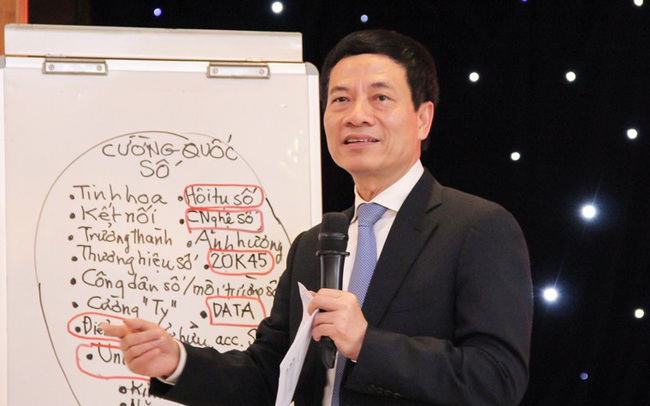 CƯỜNG QUỐC
SỐ
• Tinh hoa • Hội tụ số
• Kết nối • CNghệ số
• Trưởng thành • Ảnh hưởng
• Thương hiệu số • 20K45
• Công dân số / môi trường số
• Cường "Ty" • DATA
acc.